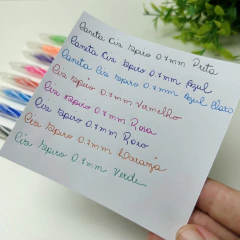 Caneta Cis Spiro 0.7mm Preta
Caneta Cis Spiro 0.7mm Azul
Caneta Cis Spiro 0.7mm Azul Claro
Cis Spiro 0.7mm Vermelho
Cis Spiro 0.7mm Rosa
Cis Spiro 0.7mm Roxo
Cis Spiro 0.7mm Laranja
Cis Spiro 0.7mm Verde